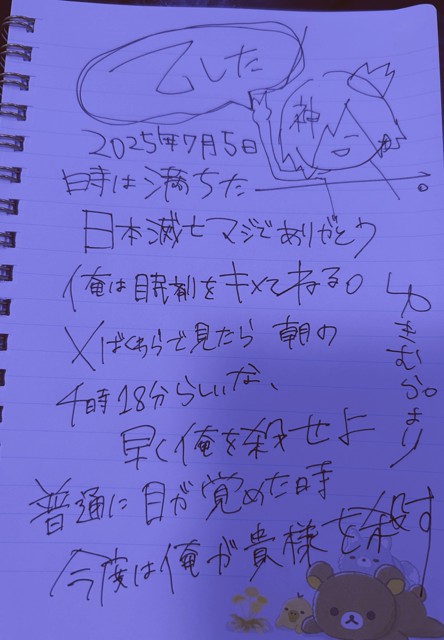 乙した
神
2025年7月5日
時は満ちた
日本滅亡マジでありがとう
俺は眠剤をキメてねる。
Xばくちらで見たら 朝の
4時18分らしいな、
早く俺を殺せよ
普通に目が覚めた時
今度は俺が貴様を殺す
ゆきむら。より